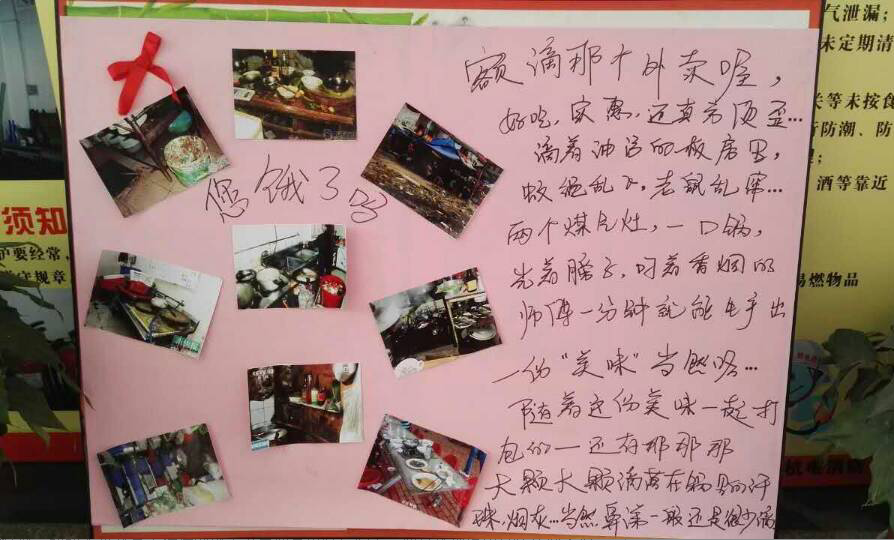 您饿了吗
额滴那个外卖喔，
好吃，实惠，还真劳顶歪...
滴着油污的板房里，
蚊蝇乱飞，老鼠乱窜...
两个煤气灶，一口锅，
光着膀子，叼着香烟的
师傅一分钟就能生产出
一份“美味”当然咯...
随着这份美味一起打
包的一还有那那那
大颗大颗滴落在锅里的汗
珠，烟灰...当然鼻涕一般还是很少滴
气泄漏；
未定期清
关等未按食
防潮、防
酒等靠近
易燃物品
须知
炉要经常，
守规章